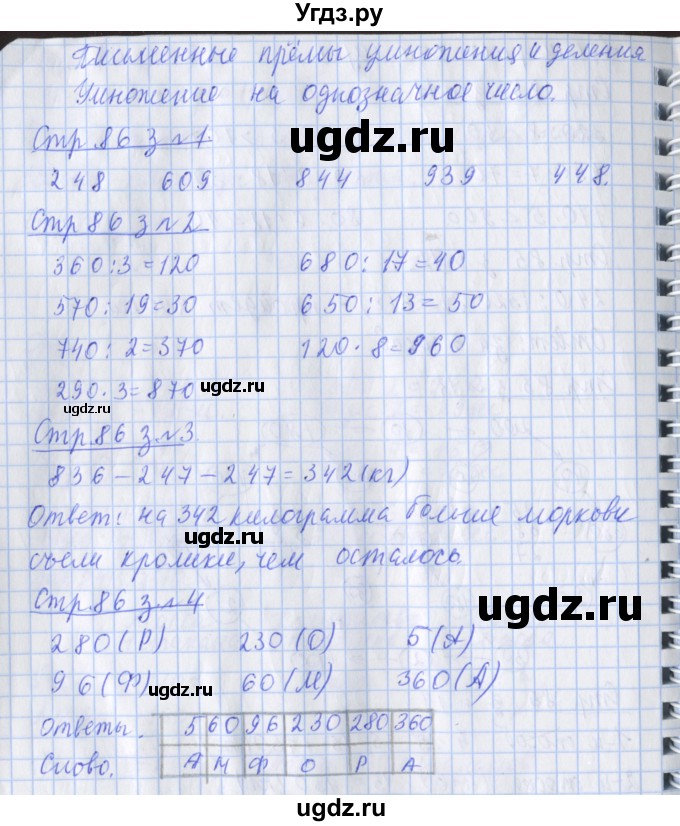 Угдз.ру
Письменные прёмы умножения и деления
Умножение на однозначное число.
Стр 86 з №1.
ugdz.ru
248 609 844 939 448.
Стр 86 з №2
360:3=120 680:17=40
570:19=30 650:13=50
740:2=370 120·8=960
290·3=870 ugdz.ru
ugdz.ru
Стр.86 з №3.
836-247-247=342(кг)
Ответ: на 342 килограмма больше моркови
ugdz.ru
съели кролики, чем осталось.
Стр.86 з №4
ugdz.ru
280(Р) 230(О) 5(А)
96(Ф) 60(М) 360(А)
ugdz.ru
Ответы. 5 60 96 230 280 360
Слово. А М Ф О Р А
ugdz.ru